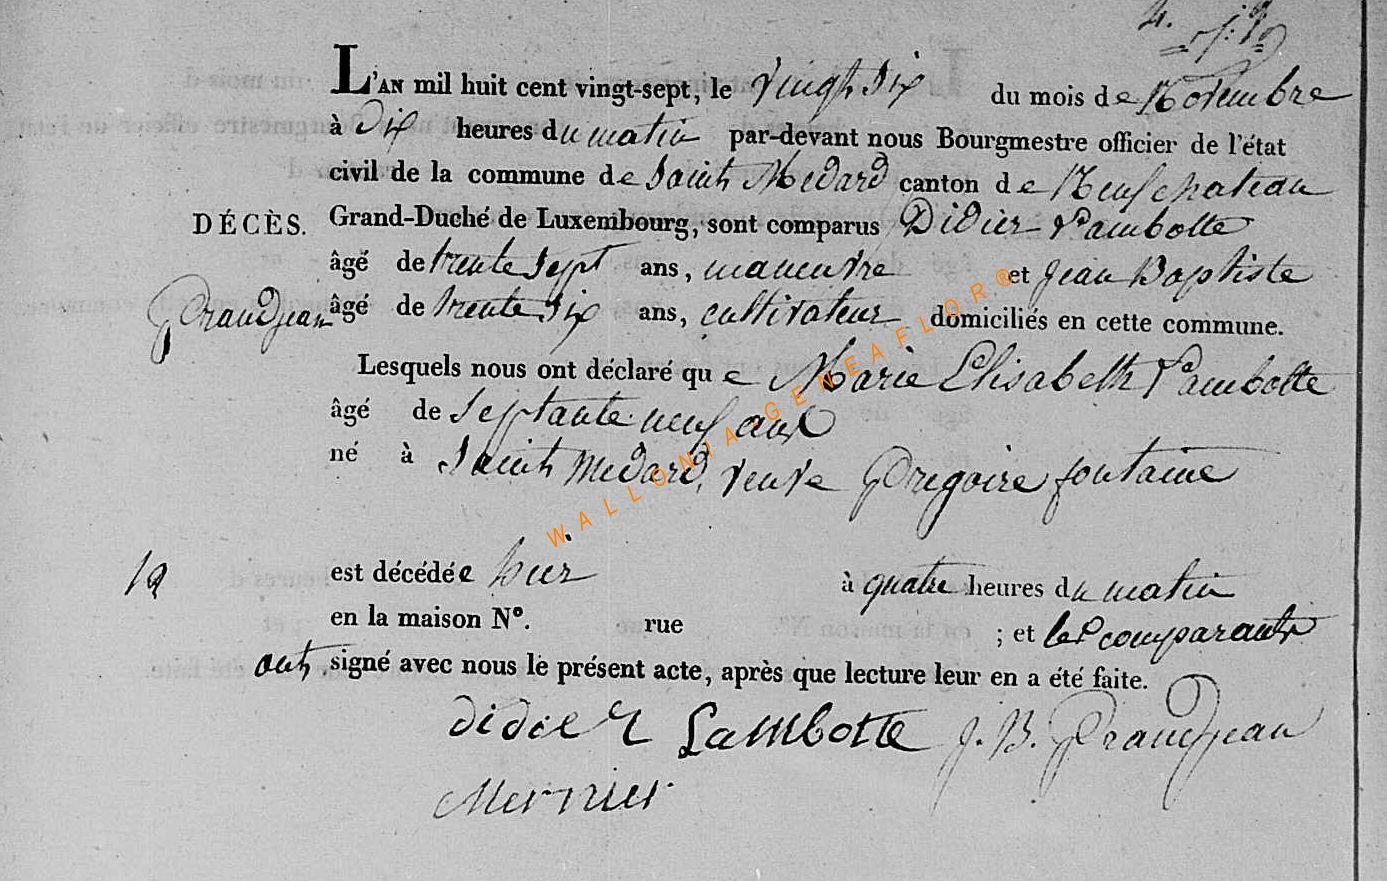 4.
L'AN mil huit cent vingt-sept, le vingt six du mois de Novembre
à Dix heures du matin par-devant nous Bourgmestre officier de l'état
civil de la commune de Saint Medard canton de Neufchateau
DÉCÈS. Grand-Duché de Luxembourg, sont comparus Didier Lambotte
âgé de trente sept ans, manœuvre et Jean Baptiste
Grandjean âgé de trente six ans, cultivateur domiciliés en cette commune.
Lesquels nous ont déclaré que Marie Elisabeth Lambotte
âgé de septante neuf ans
né à Saint Medard, veuve Gregoire fontaine
19 est décédée hier à quatre heures du matin
en la maison Nº. rue ; et les comparants
ont signé avec nous le présent acte, après que lecture leur en a été faite.
didier Lambotte J. B. Grandjean
Mernier
WALLONIA GENEAFLOR®